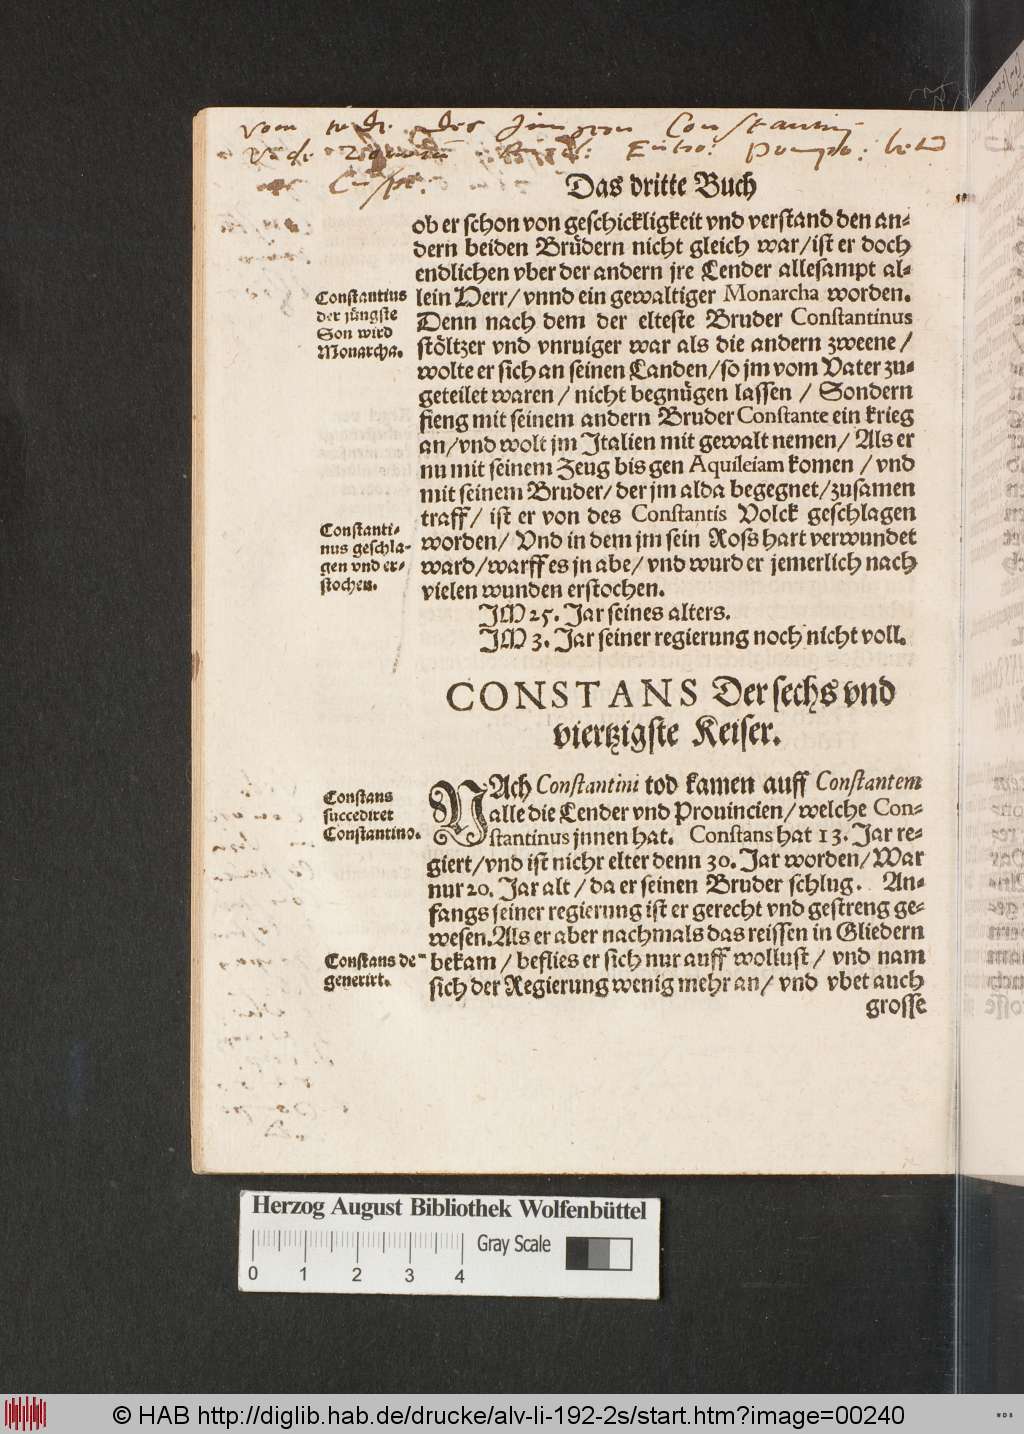 Das dritte Buch
ob er schon von geschickligkeit vnd verstand den an-
dern beiden Brüdern nicht gleich war/ist er doch
endlichen vber der andern jre Lender allesampt al-
lein Herr/ vnnd ein gewaltiger Monarcha worden.
Denn nach dem der elteste Bruder Constantinus
stöltzer vnd vnruiger war als die andern zweene/
wolte er sich an seinen Landen/so jm vom Vater zu-
geteilet waren/ nicht begnügen lassen/ Sondern
fieng mit seinem andern Bruder Constante ein krieg
an/vnd wolt jm Italien mit gewalt nemen/ Als er
nu mit seinem Zeug bis gen Aquileiam komen/vnd
mit seinem Bruder/der jm alda begegnet/zusamen
traff/ ist er von des Constantis Volck geschlagen
worden/ Vnd in dem jm sein Ross hart verwundet
ward/warff es jn abe/vnd wurd er jemerlich nach
vielen wunden erstochen.
IM 25. Jar seines alters.
IM 3. Jar seiner regierung noch nicht voll.
Constantius
der jüngste
Son wird
Monarcha.
Constanti-
nus geschla-
gen vnd er-
stochen.
CONSTANS Der sechs vnd
viertzigste Keiser.
NAch Constantini tod kamen auff Constantem
alle die Lender vnd Prouincien/welche Con-
stantinus jnnen hat. Constans hat 13. Jar re-
giert/vnd ist nichr elter denn 30. Jar worden/War
nur 20. Jar alt/da er seinen Bruder schlug. An-
fangs seiner regierung ist er gerecht vnd gestreng ge-
wesen.Als er aber nachmals das reissen in Gliedern
bekam/beflies er sich nur auff wollust/ vnd nam
sich der Regierung wenig mehr an/ vnd vbet auch
grosse
Constans
succediret
Constantino.
Constans de-
generirt.
Herzog August Bibliothek Wolfenbüttel
Gray Scale
0 1 2 3 4
© HAB http://diglib.hab.de/drucke/alv-li-192-2s/start.htm?image=00240